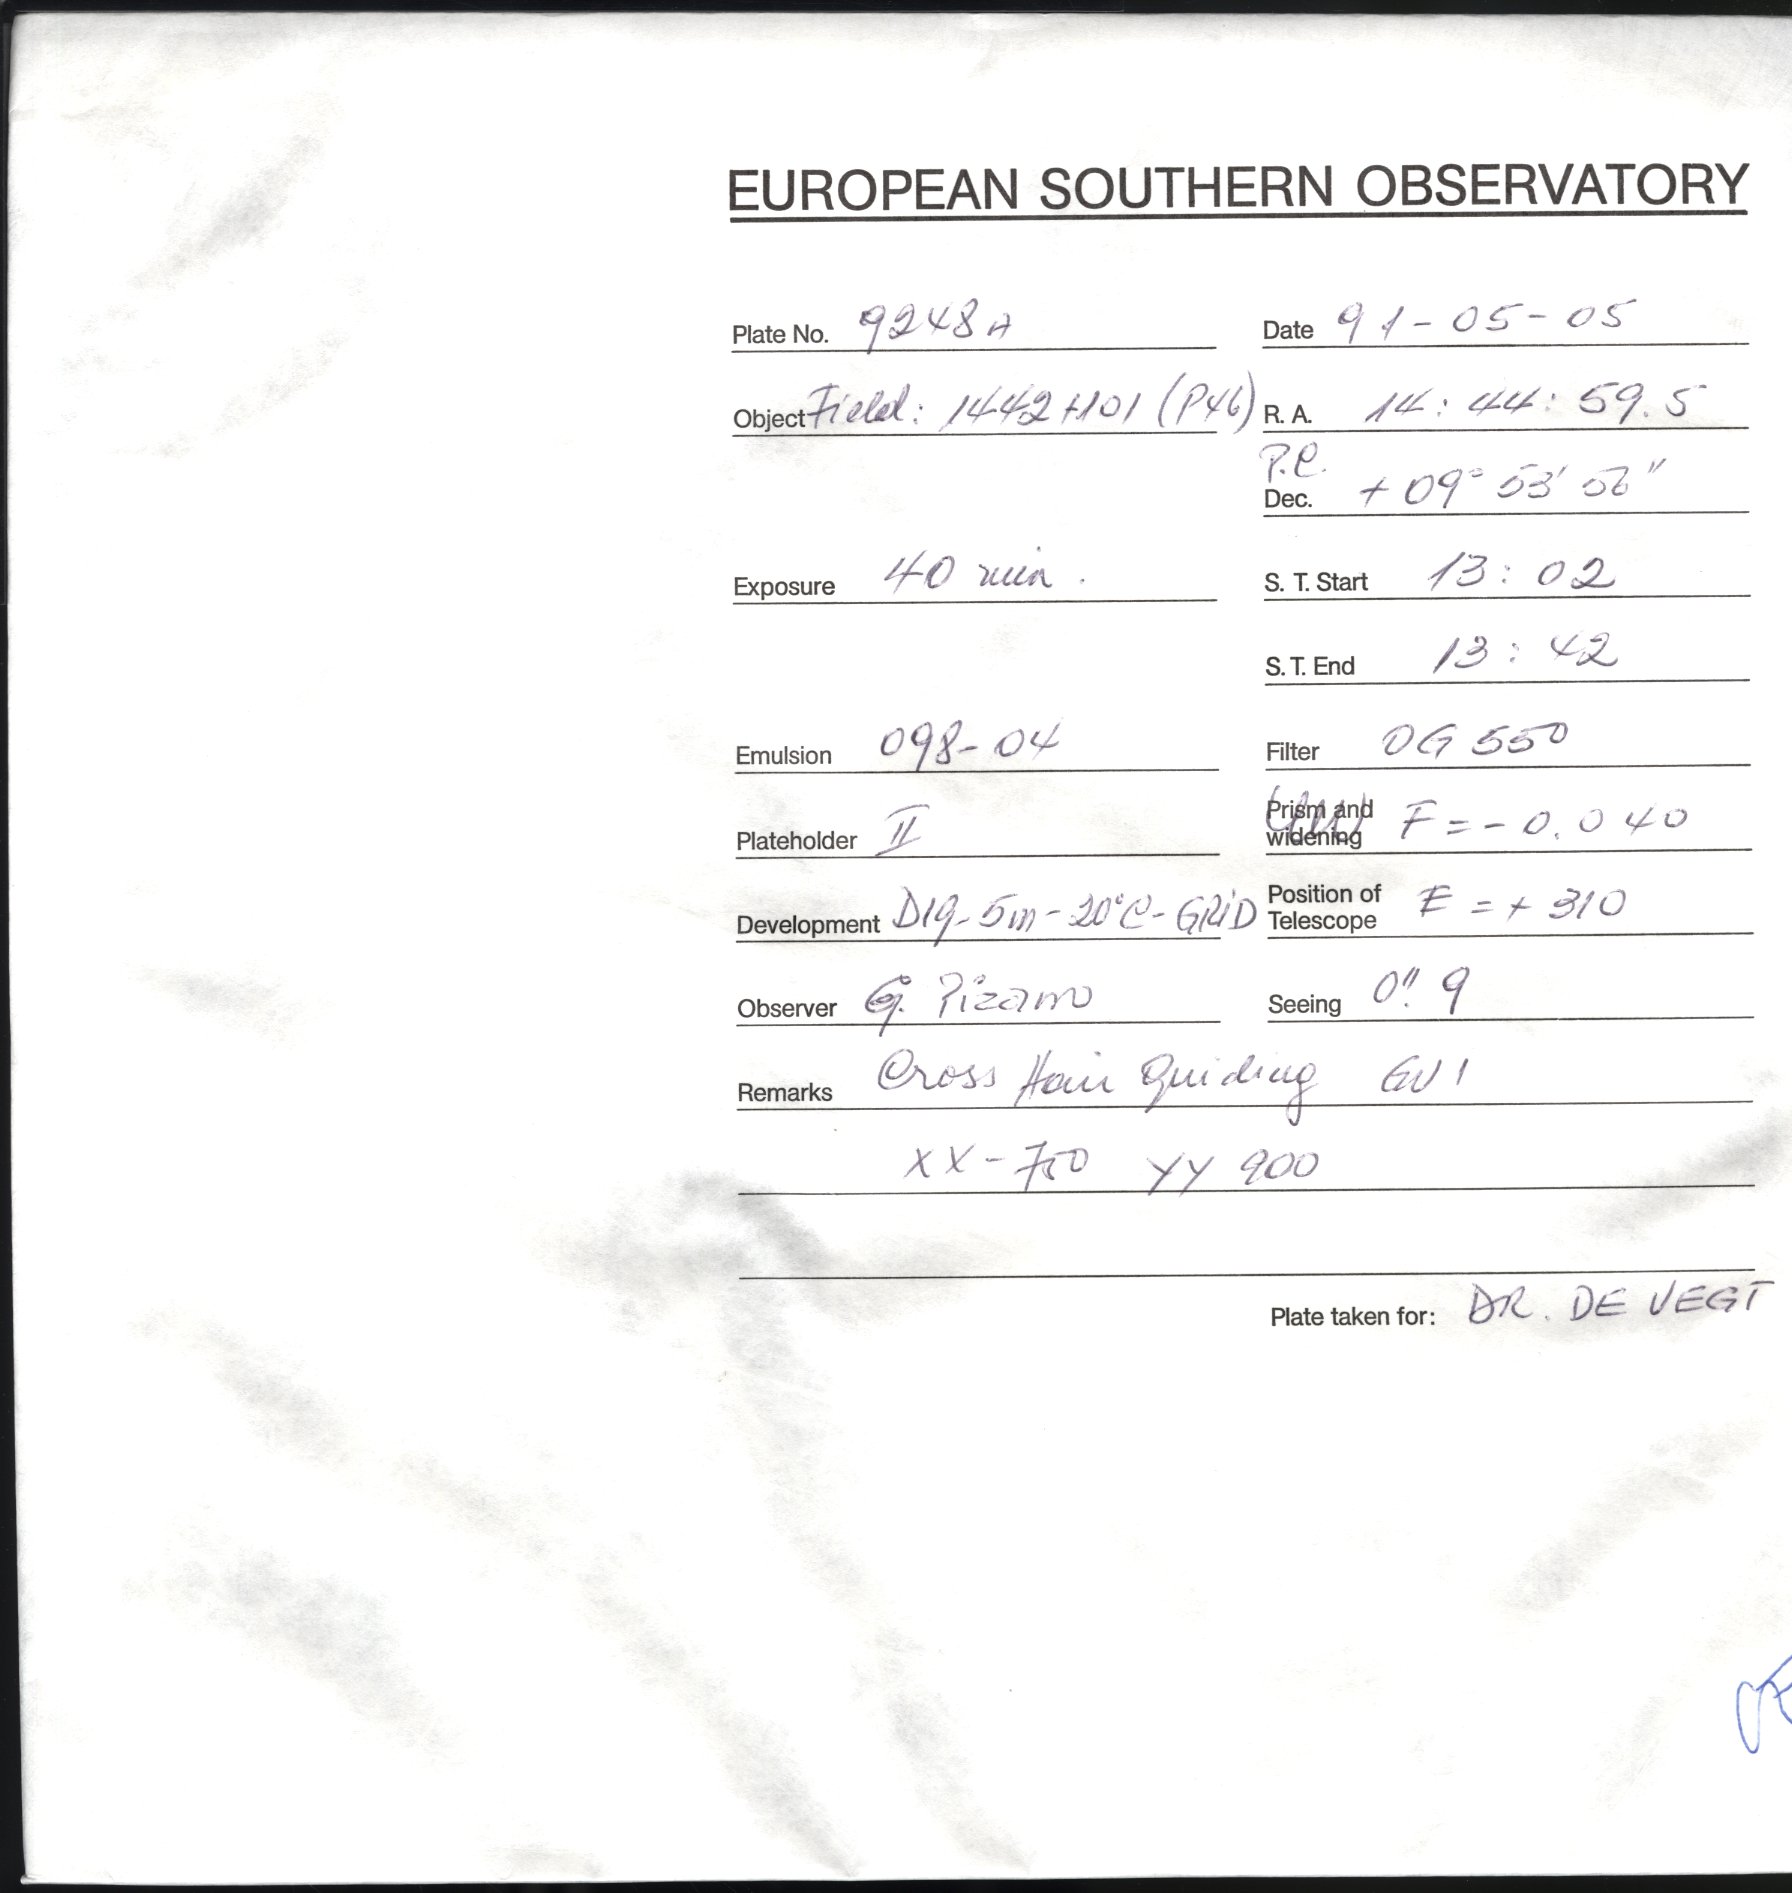 EUROPEAN SOUTHERN OBSERVATORY
Plate No. 9248A Date 91-05-05
Object Field: 1442+101 (P46) R. A. 14: 44: 59.5
P.C.
Dec. +09° 53' 56"
Exposure 40 min. S. T. Start 13: 02
S. T. End 13: 42
Emulsion 098-04 Filter OG 550
Plateholder II Prism and widening F = - 0.040
Development D19-5m-20°C-GRID Position of Telescope E = + 310
Observer G. Pizarro Seeing 0". 9
Remarks Cross Hair Guiding GV1
XX-750 YY 900
Plate taken for: DR. DE VEGT